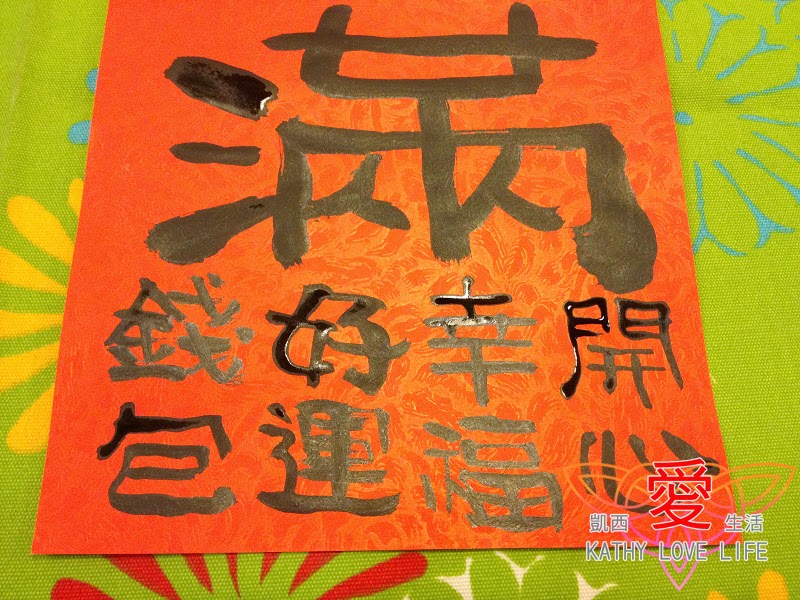 滿
開心
幸福
好運
錢包
凱西 愛 生活
KATHY LOVE LIFE